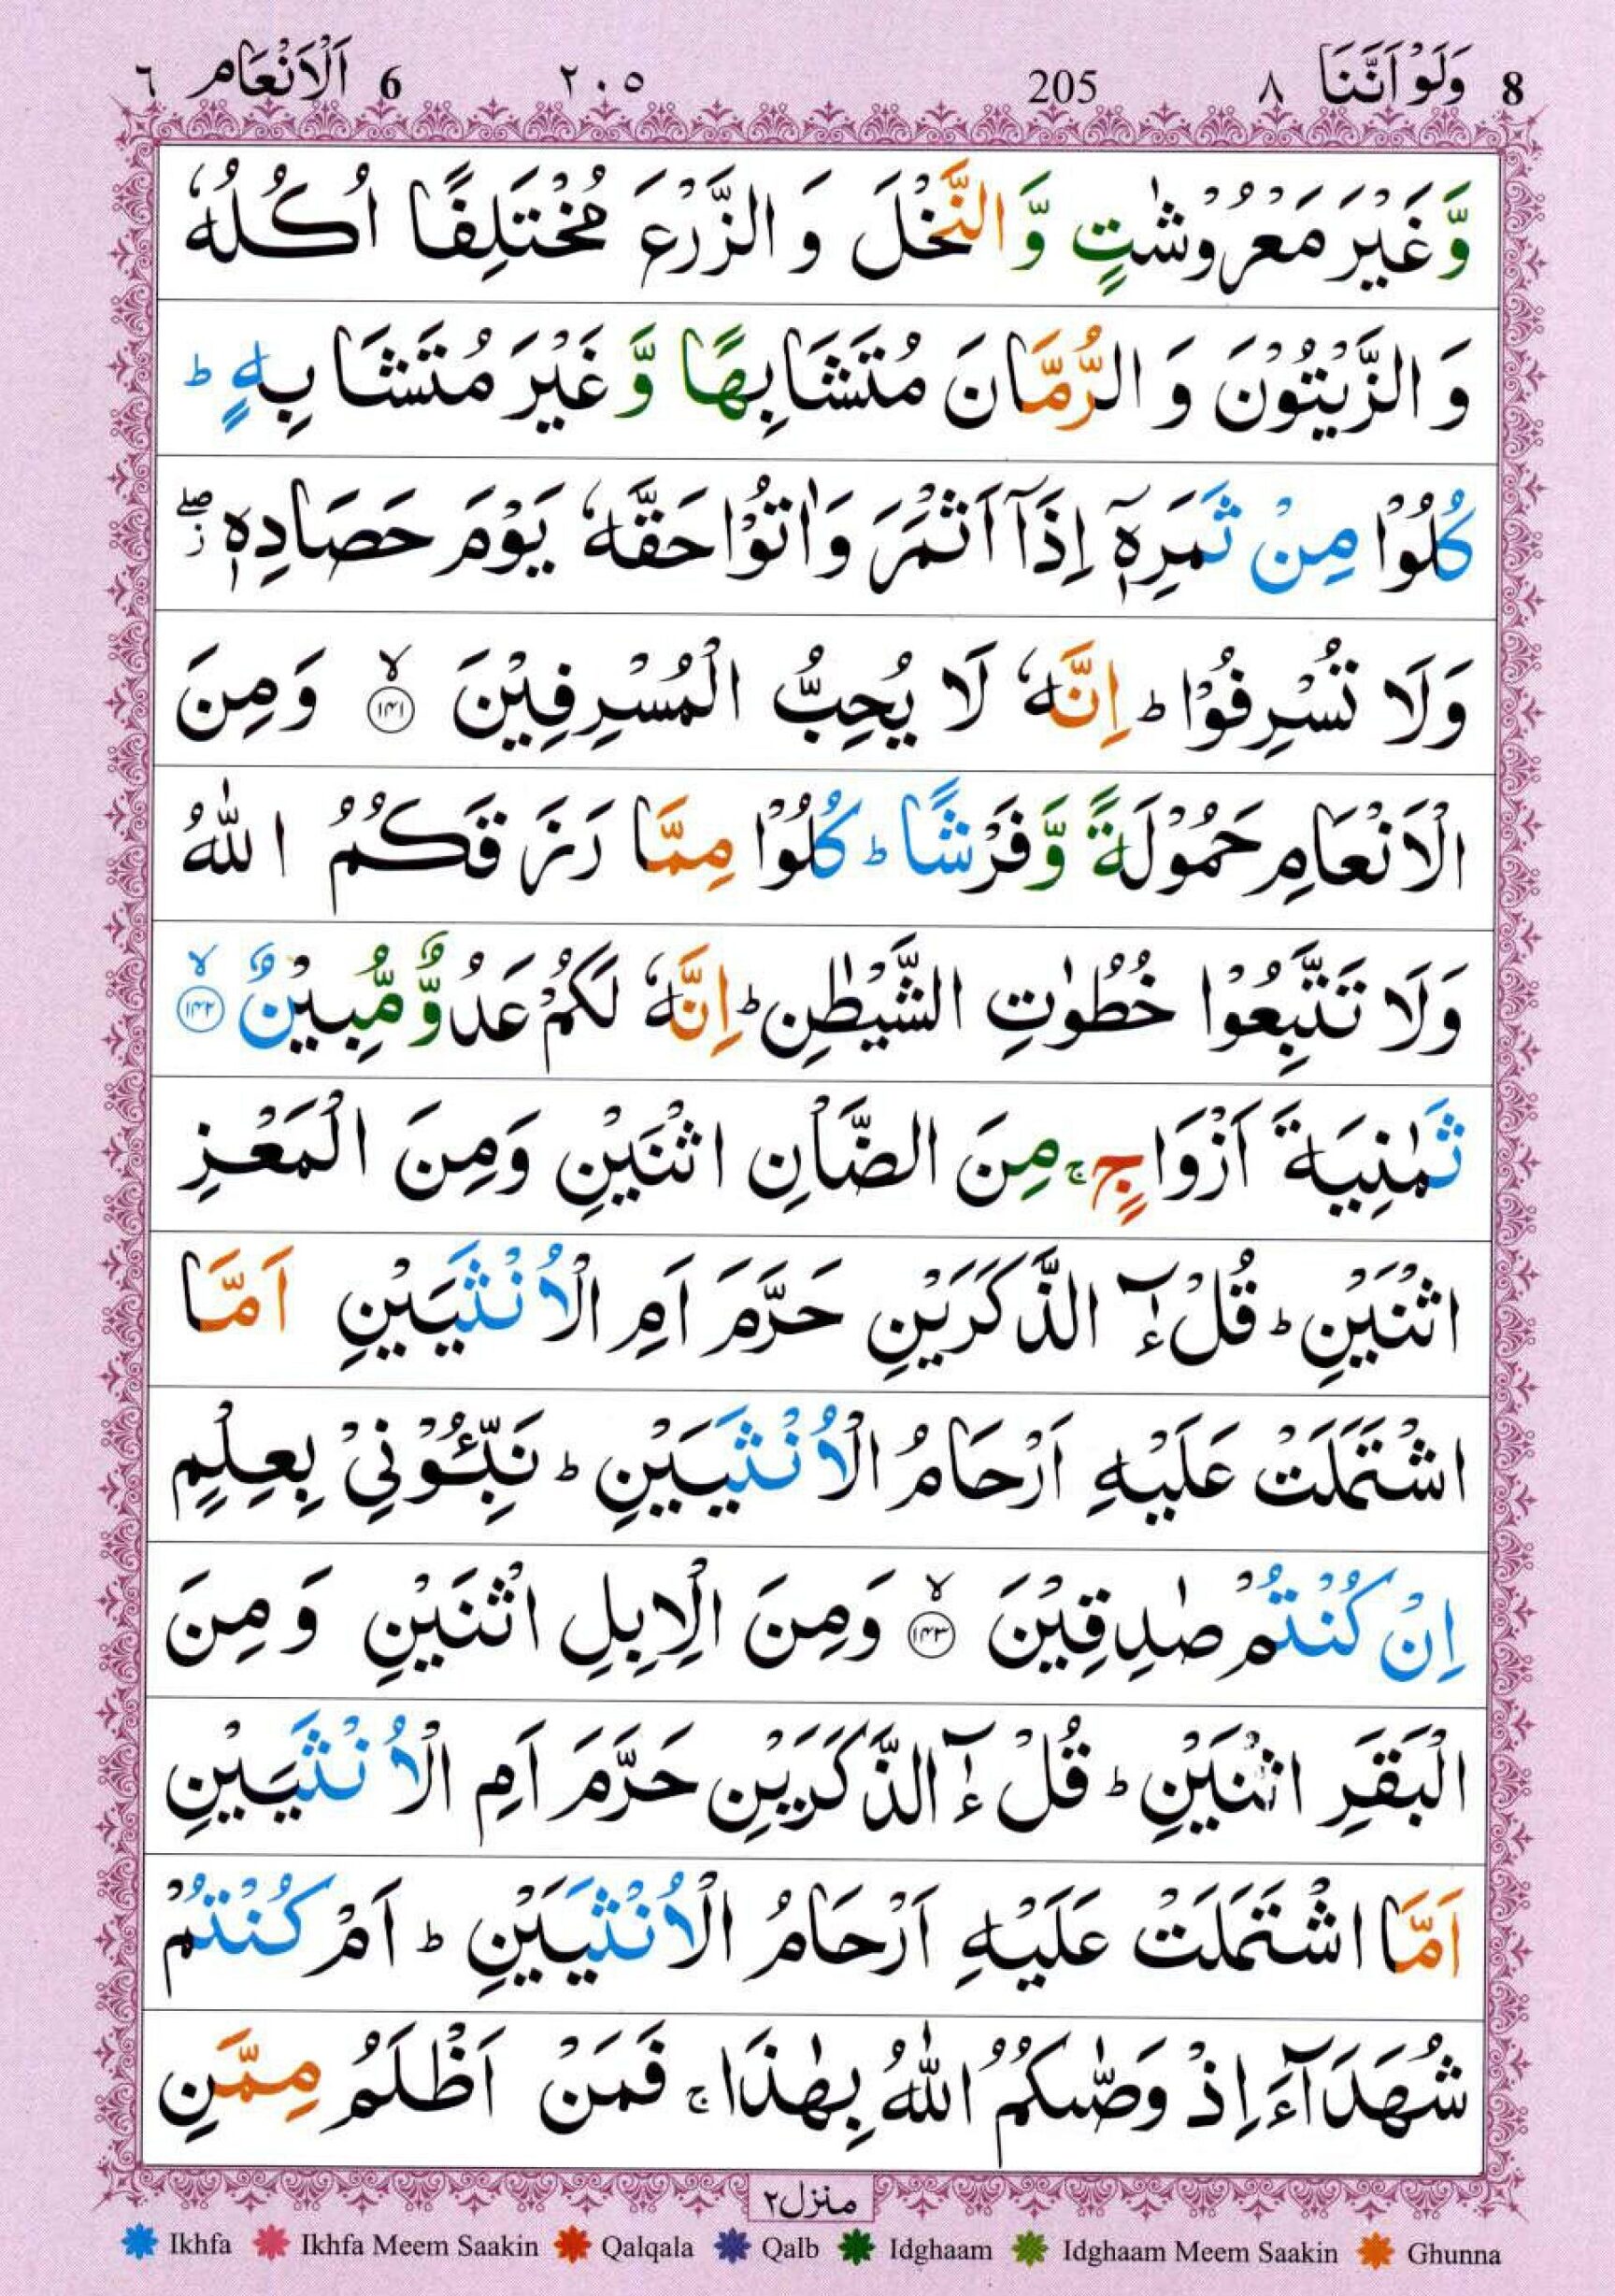 8 وَلَوْ اَنَّنَا ٨ 205 ٢٠٥ 6 اَلْاَنْعَام ٦
وَّ غَيْرَ مَعْرُوْشٰتٍ وَّ النَّخْلَ وَ الزَّرْعَ مُخْتَلِفًا اُكُلُهٗ
وَ الزَّيْتُوْنَ وَ الرُّمَّانَ مُتَشَابِهًا وَّ غَيْرَ مُتَشَابِهٍ ؕ
كُلُوْا مِنْ ثَمَرِهٖۤ اِذَاۤ اَثْمَرَ وَ اٰتُوْا حَقَّهٗ يَوْمَ حَصَادِهٖ ۖ٘
وَلَا تُسْرِفُوْا ؕ اِنَّهٗ لَا يُحِبُّ الْمُسْرِفِيْنَ ۙ﴿۱۴۱﴾ وَمِنَ
الْاَنْعَامِ حَمُوْلَةً وَّ فَرْشًا ؕ كُلُوْا مِمَّا رَزَقَكُمُ اللّٰهُ
وَلَا تَتَّبِعُوْا خُطُوٰتِ الشَّيْطٰنِ ؕ اِنَّهٗ لَكُمْ عَدُوٌّ مُّبِيْنٌ ۙ﴿۱۴۲﴾
ثَمٰنِيَةَ اَزْوَاجٍ ۚ مِنَ الضَّاْنِ اثْنَيْنِ وَمِنَ الْمَعْزِ
اثْنَيْنِ ؕ قُلْ ءٰٓالذَّكَرَيْنِ حَرَّمَ اَمِ الْاُنْثَيَيْنِ اَمَّا
اشْتَمَلَتْ عَلَيْهِ اَرْحَامُ الْاُنْثَيَيْنِ ؕ نَبِّـُٔوْنِيْ بِعِلْمٍ
اِنْ كُنْتُمْ صٰدِقِيْنَ ۙ﴿۱۴۳﴾ وَمِنَ الْاِبِلِ اثْنَيْنِ وَمِنَ
الْبَقَرِ اثْنَيْنِ ؕ قُلْ ءٰٓالذَّكَرَيْنِ حَرَّمَ اَمِ الْاُنْثَيَيْنِ
اَمَّا اشْتَمَلَتْ عَلَيْهِ اَرْحَامُ الْاُنْثَيَيْنِ ؕ اَمْ كُنْتُمْ
شُهَدَآءَ اِذْ وَصّٰىكُمُ اللّٰهُ بِهٰذَا ۚ فَمَنْ اَظْلَمُ مِمَّنِ
منزل ٢
Ikhfa Ikhfa Meem Saakin Qalqala Qalb Idghaam Idghaam Meem Saakin Ghunna